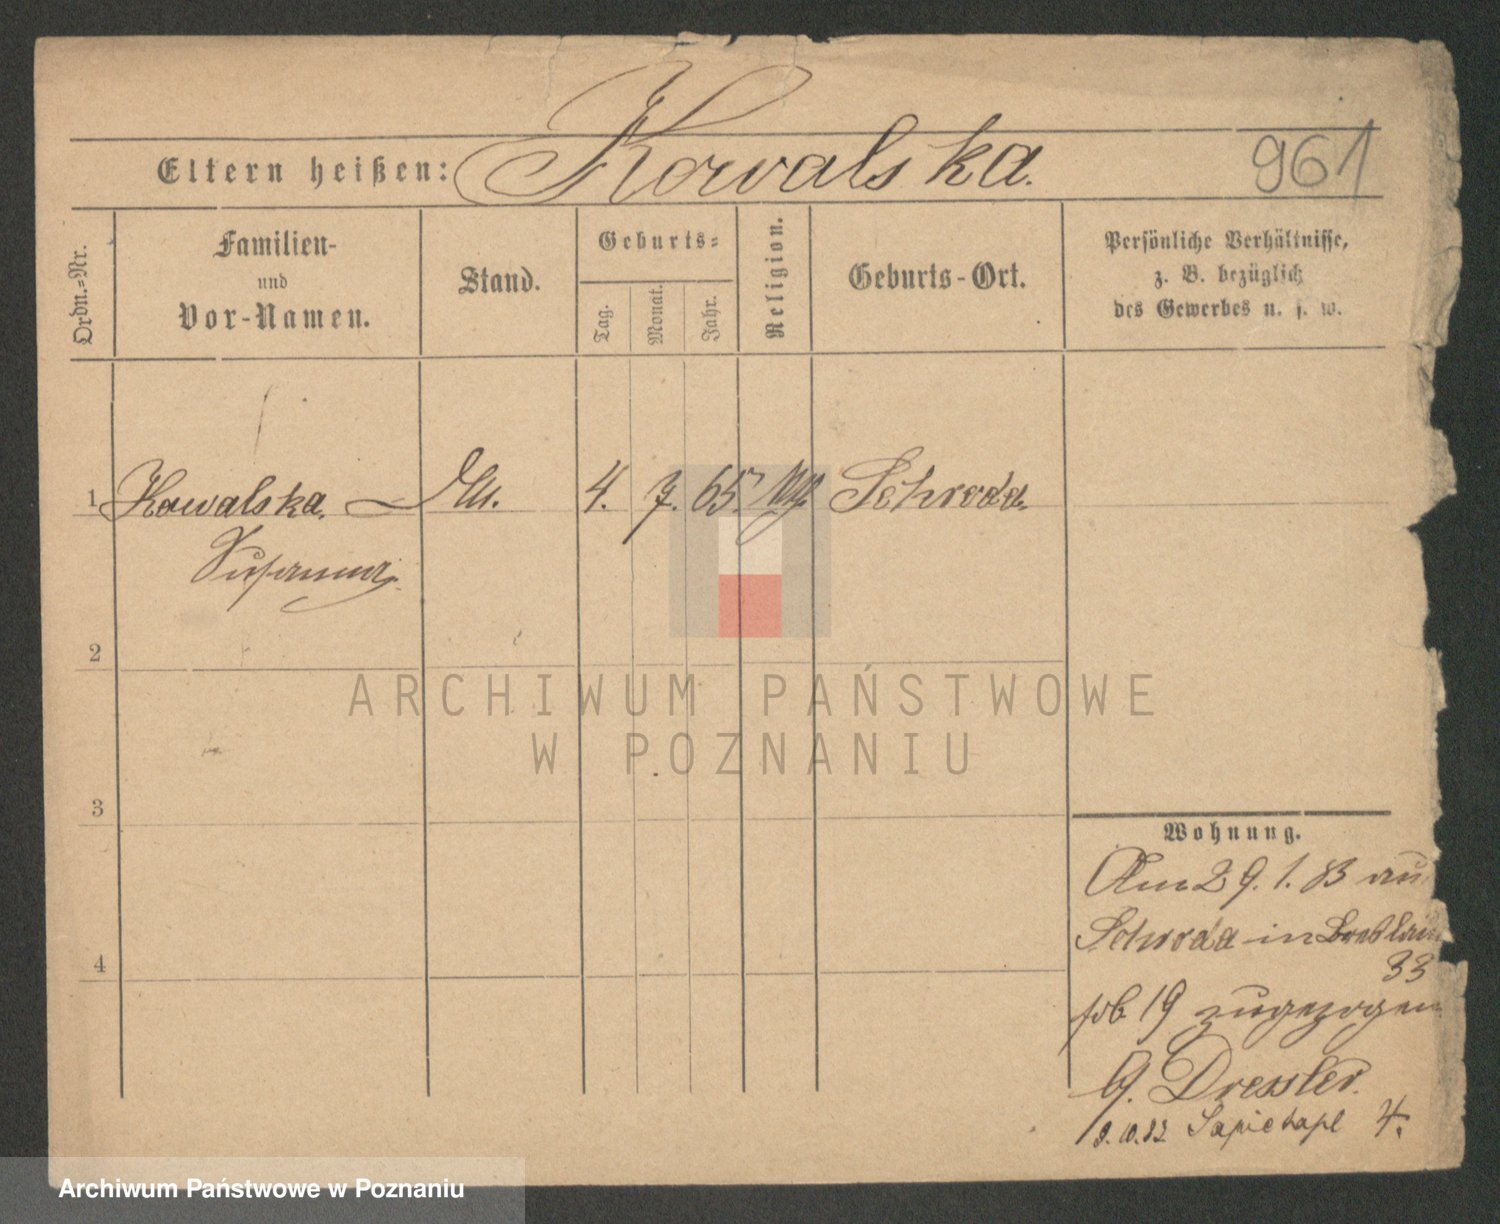 Eltern heißen: Kowalska. 961
Ordn.-Nr.
Familien-
und
Vor-Namen.
Stand.
Geburts-
Tag.
Monat.
Jahr.
Religion.
Geburts-Ort.
Persönliche Verhältnisse,
z. B. bezüglich
des Gewerbes u. s. w.
1 Kowalska. 4. 7. 65. Schroda.
Susanna.
2
3
4
Wohnung.
Am 29. 1. 83 au
Schroda in Breslau
33
19 zugezogen
b. Dressler.
9. 10. 82 Sapiehapl 4.
ARCHIWUM PAŃSTWOWE
W POZNANIU
Archiwum Państwowe w Poznaniu